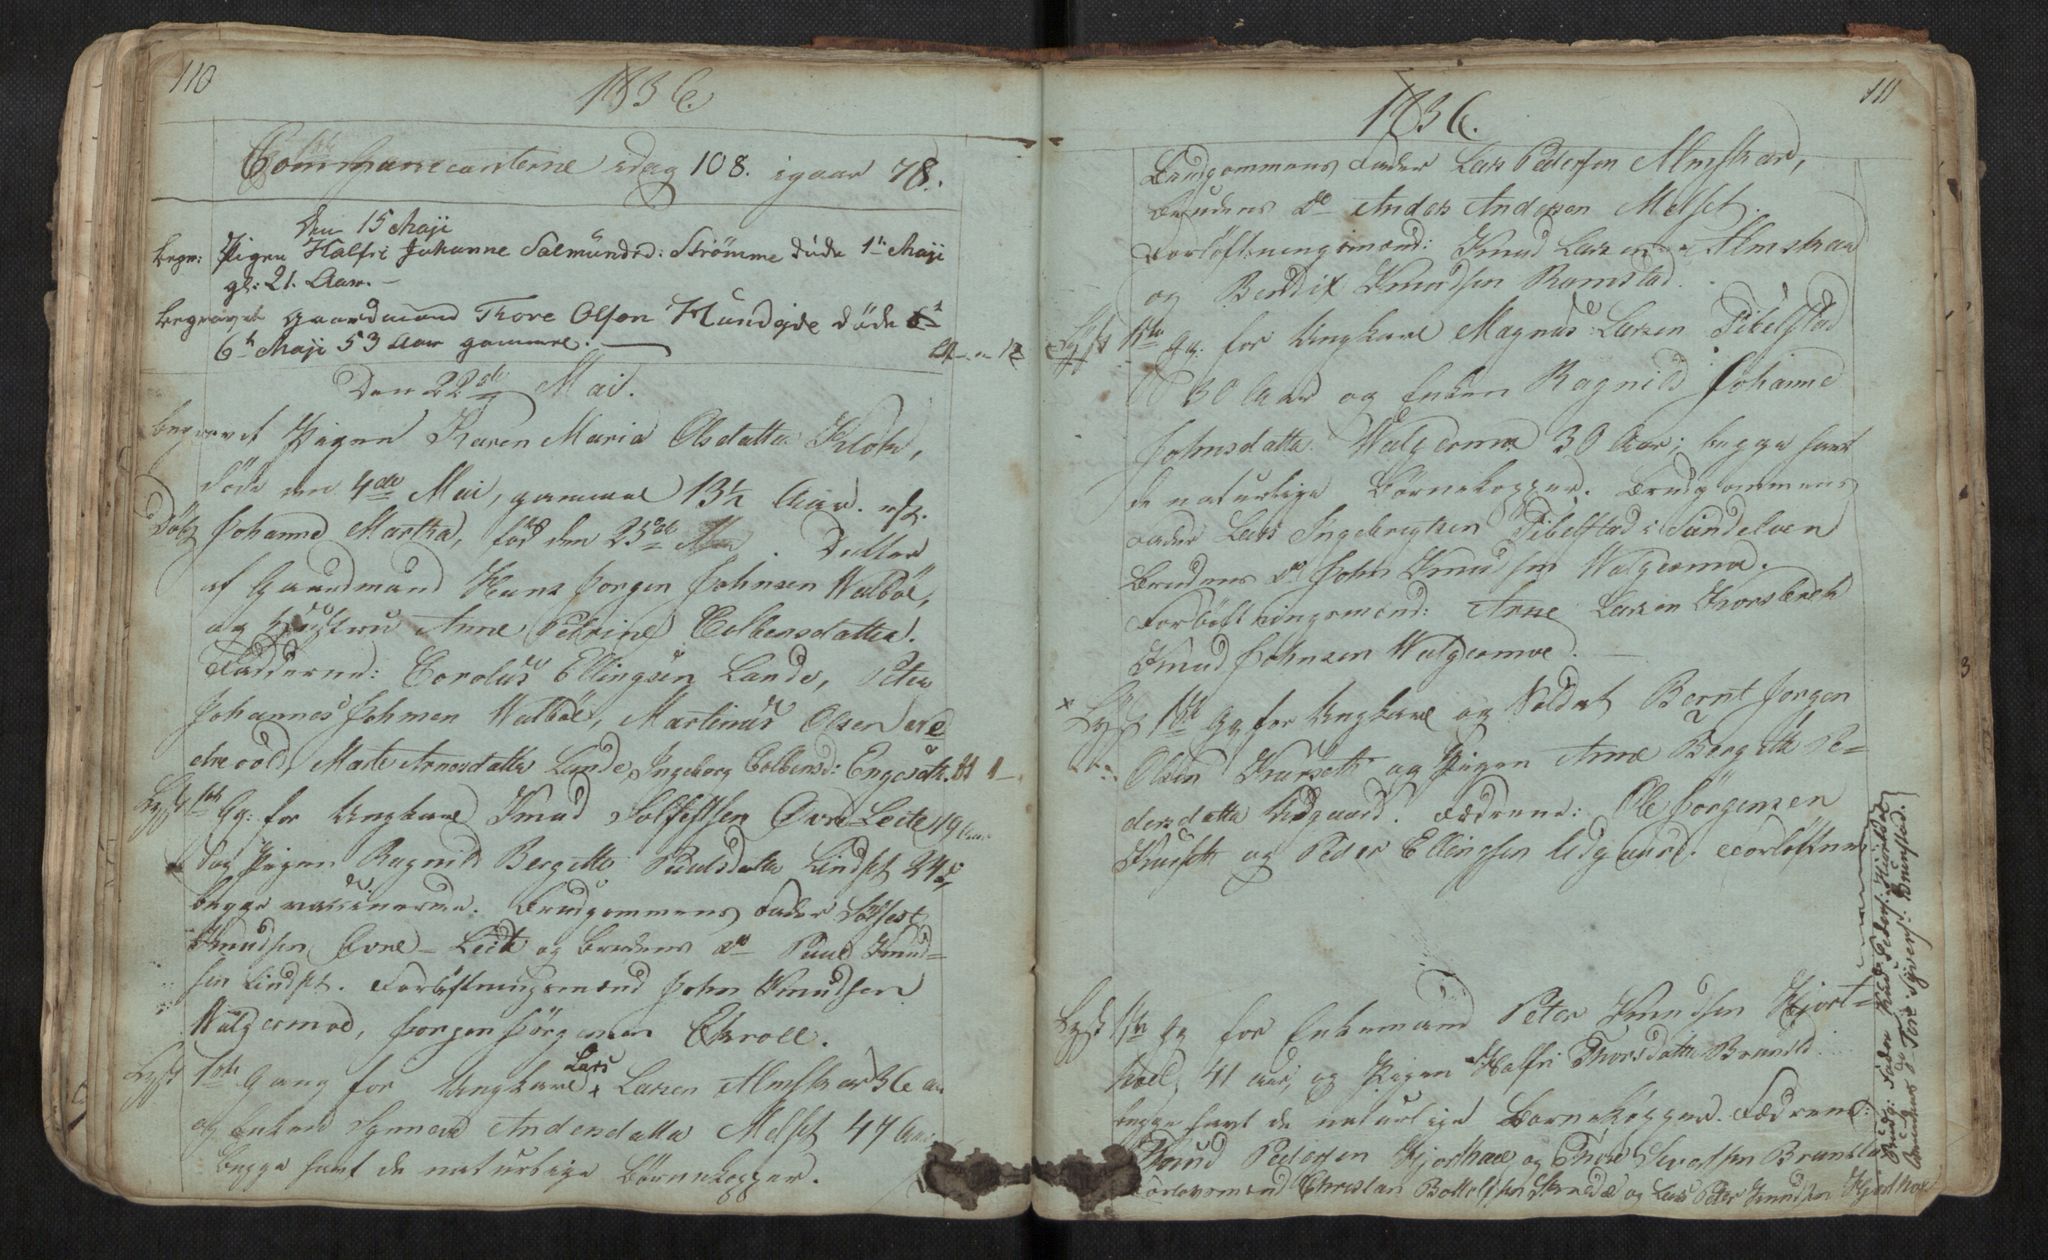 110
1836.
Communicanterne idag 108. igaar 78.
Den 15 Maji
begr: Pigen Halfri Johanne Salmundsd: Strømme døde 1te Maji
gl: 21. Aar. –
Begravet gaardmand Thore Olsen Hundeide døde
6te Maji 53 Aar gammel. –
Den 22de Mai.
Begravet Pigen Karen Maria Olsdatter Klok,
døde den 4de Mai, gammel 13½ Aar.
Døbt Johanne Martha, fød den 25de Datter
af Gaardmand Hans Jørgen Johnsen Walbøe,
og Hustru Anne Pedrine Colbensdatter.
Fadderne: Corolus Ellingsen Lande, Peter
Johannes Johnsen Walbøe, Martinus Olsen
Marte Arnesdatter Lande, Ingeborg Colbensd: Engesæth.
Lyst 1ste Gg: for Ungkarl Knud Solfestsen Øvre-Leite 19 Aar
og Pigen Ragnild Bergitte Paulsdatter Lindset 24
begge vaccinerede. Brudgommens Fader Solfest
Knudsen Øvre-Leite og brudens do Paul Knud-
sen Lindset. Forløftningsmænd John Knudsen
Walgermoe, Jørgen Jørgensen Ekroll.
Lyst 1ste Gang for Ungkarl Lars Larsen Almskar 36 aar
og Enken Synneve Andersdatter Melset 47 Aar
begge havt de naturlige børnekopper.
111
1836.
Brudgommens Fader Lars Pedersen Almskar,
brudens do Anders Andersen Melset.
Forløftningsmænd: Knud Larsen Almskar
og Bendix Knudsen Ramstad.
Lyst 1ste Gg. for Ungkarl Magnus Larsen Tibelstad
30 Aar og Enken Ragnild Johanne
Johnsdatter Walgermoe 30 Aar; begge havt
de naturlige Børnekopper. Brudgommens
Fader Lars Ingebrigtsen Tibelstad i Sundelven
Brudens do John Knudsen Walgermoe.
Forløftningsmænd: Arne Larsen Korsbrek
Knud Johnsen Walgermoe. –
Lyst 1ste Gg for Ungkarl og Soldat Bernt Jørgen
Olsen Kurseth og Pigen Anne Bergitte Pe-
dersdatter Udgaard. Fædrene: Ole Jørgensen
Kurseth og Peder Ellingsen Udgaard. Forløftnm
Lyst 1ste Gg for Enkemand Peter Knudsen Hjort-
hoel, 41 aar, og Pigen Halfri Thorsdatter Brunstd
begge havt de naturlige Børnekopper. Fædrene:
Knud Pedersen Hjorthoel og Thore Sivertsen Brunstad
Forlovsmænd Christian Bottolfsen og Lars Peter Knudsen Hjorthoel
Brudg: Fader Knud Peders: Hiortdal
Brudens do Tore Syvers: Brunstad.